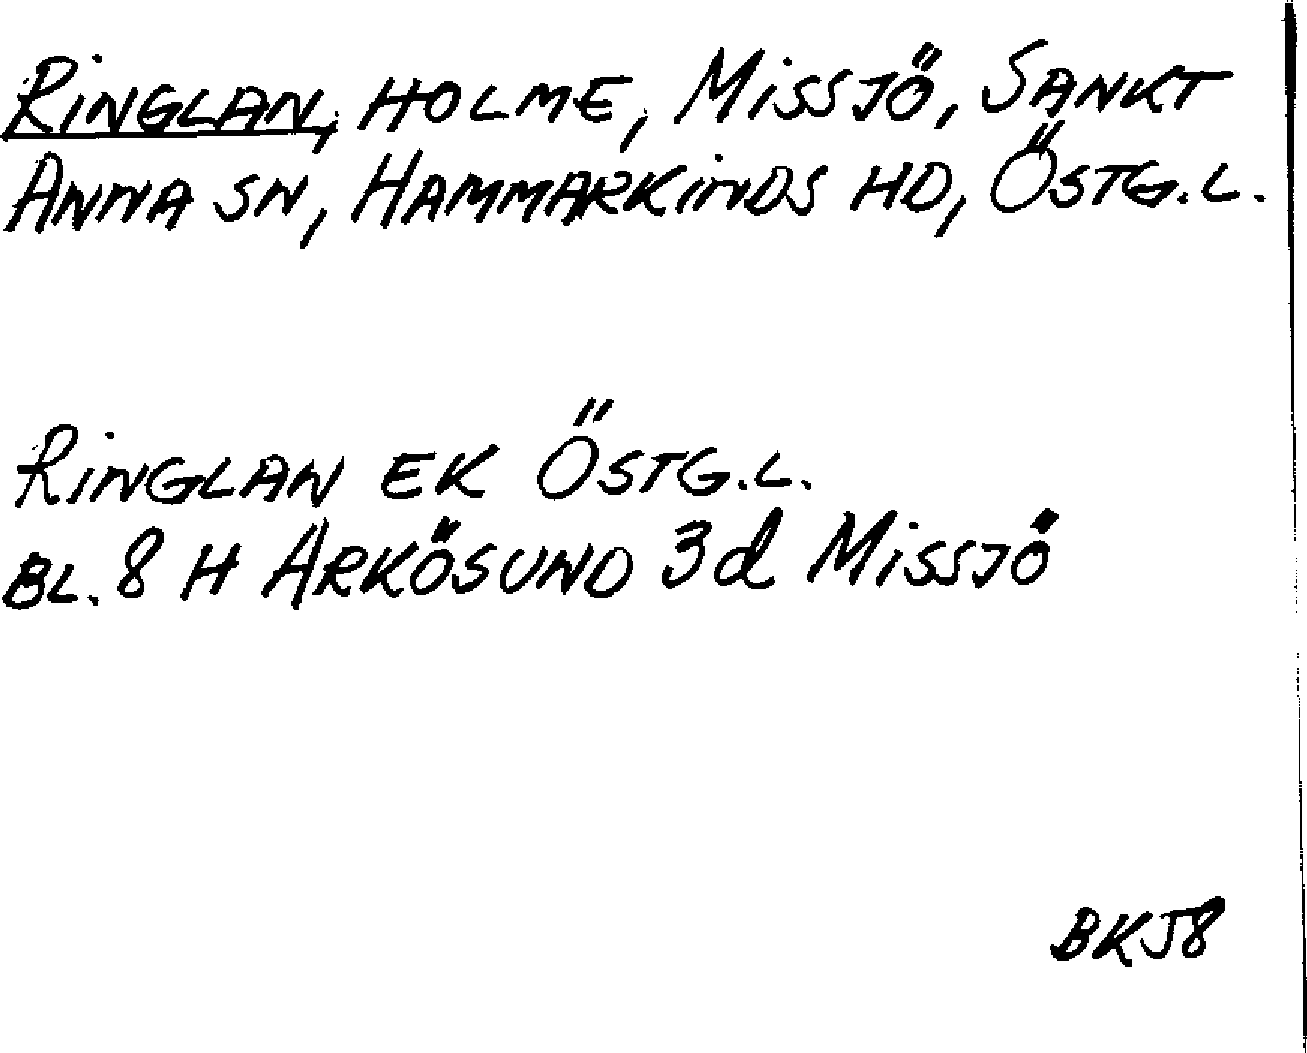 RINGLAN, HOLME, MISSJÖ, SANKT
ANNA SN, HAMMARKINDS HD, ÖSTG.L.
RINGLAN EK ÖSTG.L.
BL. 8 H ARKÖSUND 3d MISSJÖ
BKJ8